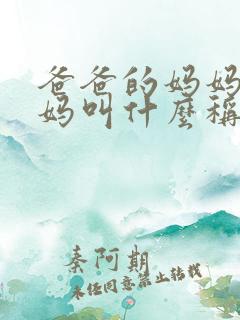 爸爸的妈妈
妈叫什麼稱
秦阿期
未任同意禁止转载